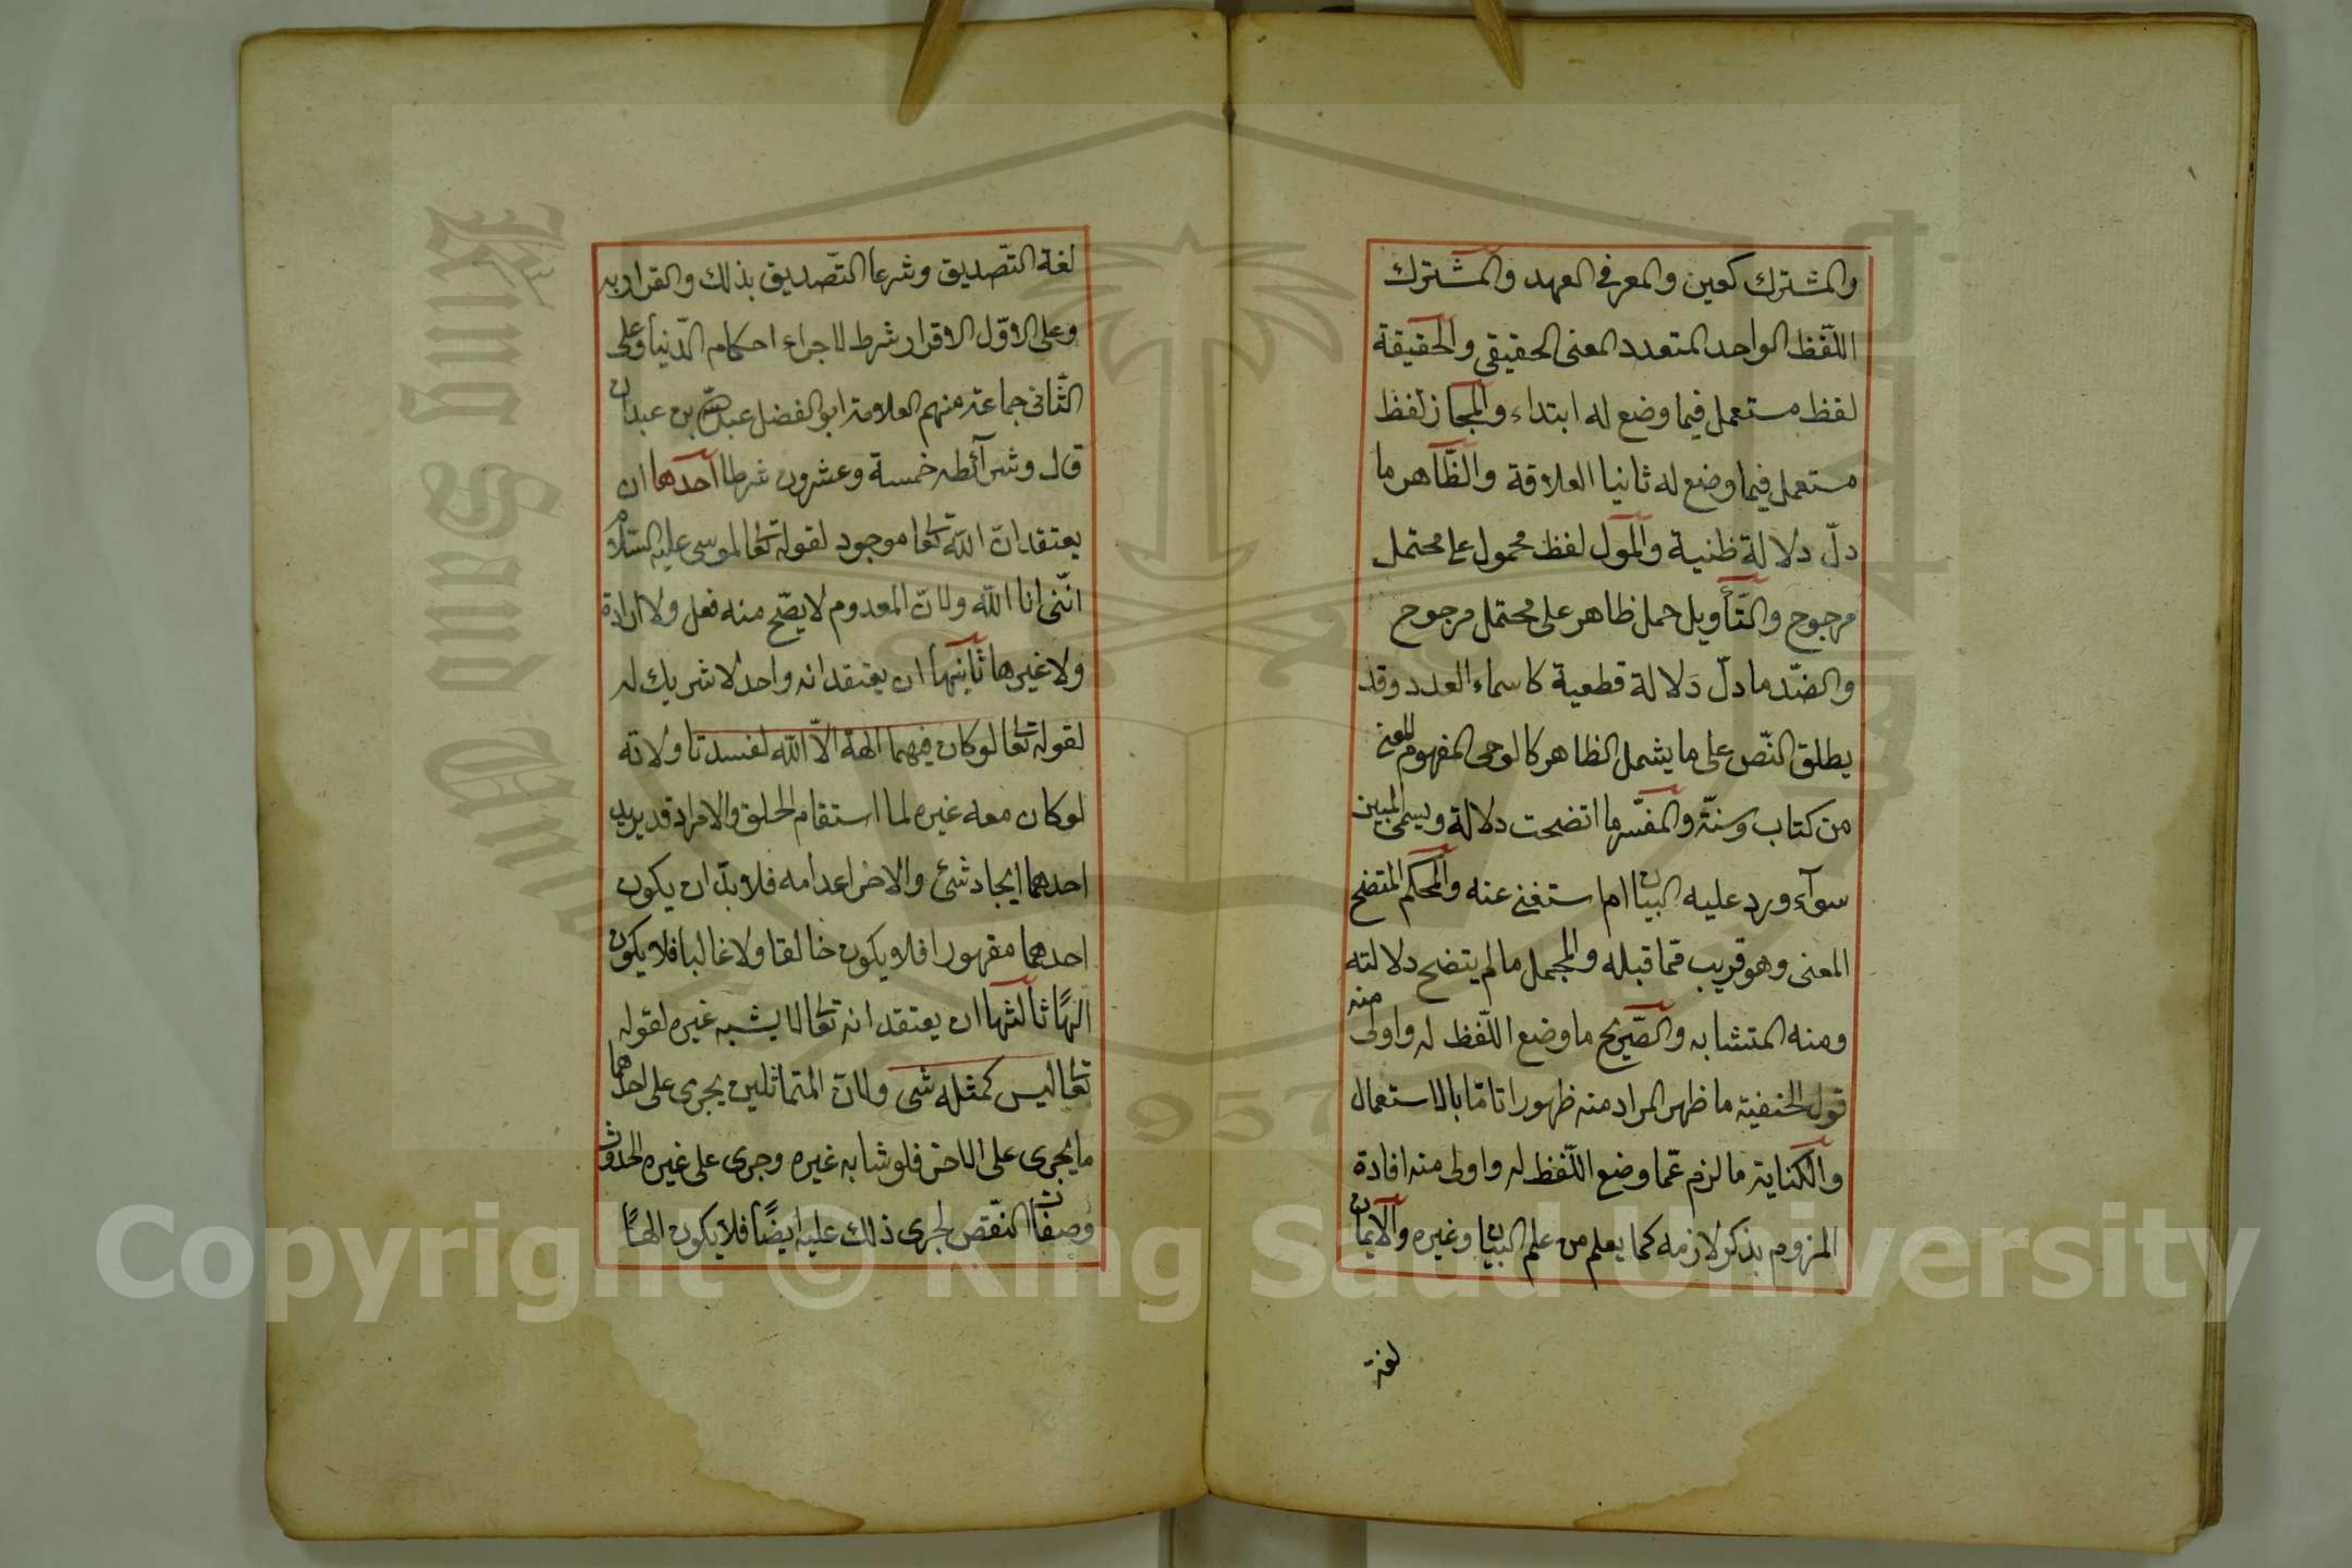 والمشترك كعين والمعرف العهد والمشترك
اللّفظ الواحد المتعدد المعنى الحقيقي والحقيقة
لفظ مستعمل فيما وضع له ابتداء والمجاز لفظ
مستعمل فيما وضع له ثانيا العلاقة والظّاهر ما
دلّ دلالة ظنية والمول لفظ محمول على محتمل
مرجوح والتّأويل حمل ظاهر على محتمل مرجوح
والضّد ما دلّ دلالة قطعية كاسماء العدد وقد
يطلق النّص على ما يشمل الظاهر كالوحى المفهوم المعنى
من كتاب وسنّة والمفسّر ما اتضحت دلالة ويسمى المبين
سوآء ورد عليه البيان ام استغنى عنه والمحكم المتضح
المعنى وهو قريب ممّا قبله والمجمل ما لم يتضح دلالته
ومنه المتشابه والصّريح ما وضع اللّفظ له واولى منه
قول الحنفية ما ظهر المراد منه ظهورا تامّا بالاستعمال
والكناية ما لزم عمّا وضع اللّفظ له واولى منه افادة
المزوم بذكر لازمه كما يعلم من علم البيان وغيره والايمان
لغة
لغة التّصديق وشرعا التّصديق بذلك والقرار به
وعلى الاوّل الاقرار شرط لاجراء احكام الدّنيا وعلى
الثّانى جماعة منهم العلامة ابو الفضل عبد الله بن عبدان
قال وشرآئطه خمسة وعشرون شرطا احدها ان
يعتقد انّ الله تعا موجود لقوله تعا لموسى عليه السّلام
انّنى انا الله ولانّ المعدوم لا يصّح منه فعل ولا ارادة
ولا غيرها ثانيها ان يعتقد انه واحد لا شريك له
لقوله تعا لو كان فيهما الهة الّا الله لفسدتا ولانه
لو كان معه غيره لما استقام الخلق والامر اذ قد يريد
احدهما ايجاد شئ والاخر اعدامه فلا بدّ ان يكون
احدهما مقهورا فلا يكون خالقا ولا غالبا فلا يكون
الهًا ثالثها ان يعتقد انه تعا لا يشبه غيره لقوله
تعا ليس كمثله شى ولانّ المتماثلين يجرى على احدهما
ما يجرى على الاخر فلو شابه غيره وجرى على غيره الحدوث
وصفات النّقص لجرى ذلك عليه ايضًا فلا يكون الهًا
Copyright © King Saud University
King Saud University
1957